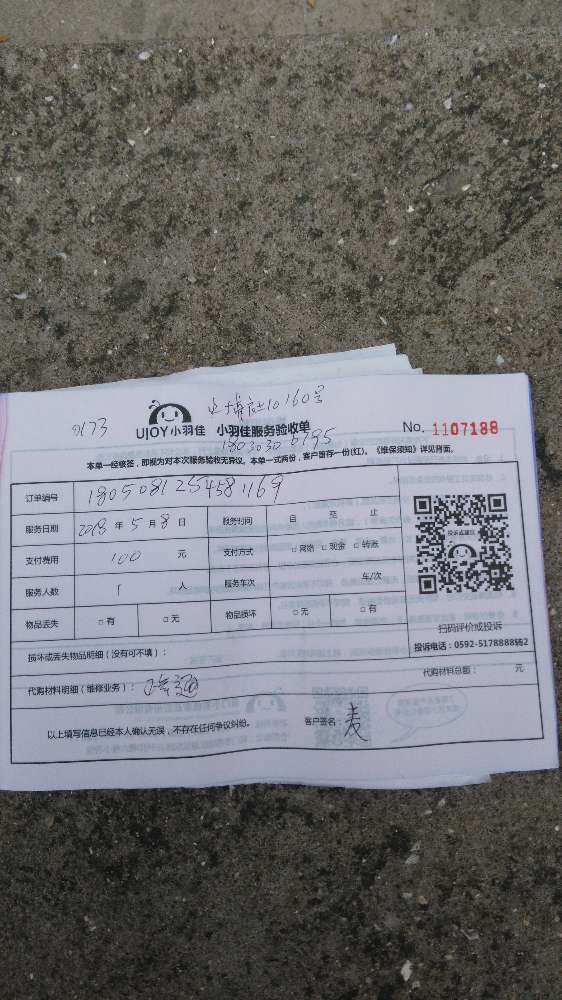 0173
UJOY小羽佳 小羽佳服务验收单 No. 1107188
本单一经核签，即视为对本次服务验收无异议。本单一式两份，客户留存一份(红)。《维保须知》详见背面。
订单编号 1805081254581169
服务日期 2018 年 5 月 8 日 服务时间 自 至 止
支付费用 100 元 支付方式 □ 网络 □ 现金 □ 转账
服务人数 1 人 服务车次 车/次
物品丢失 □ 有 □ 无 物品损坏 □ 无 □ 有
投诉或建议
扫码评价或投诉
投诉电话：0592-5178888转2
损坏或丢失物品明细（没有可不填）：
代购材料明细（维修业务）： 代购材料总额： 元
以上填写信息已经本人确认无误，不存在任何争议纠纷。 客户签名： 麦